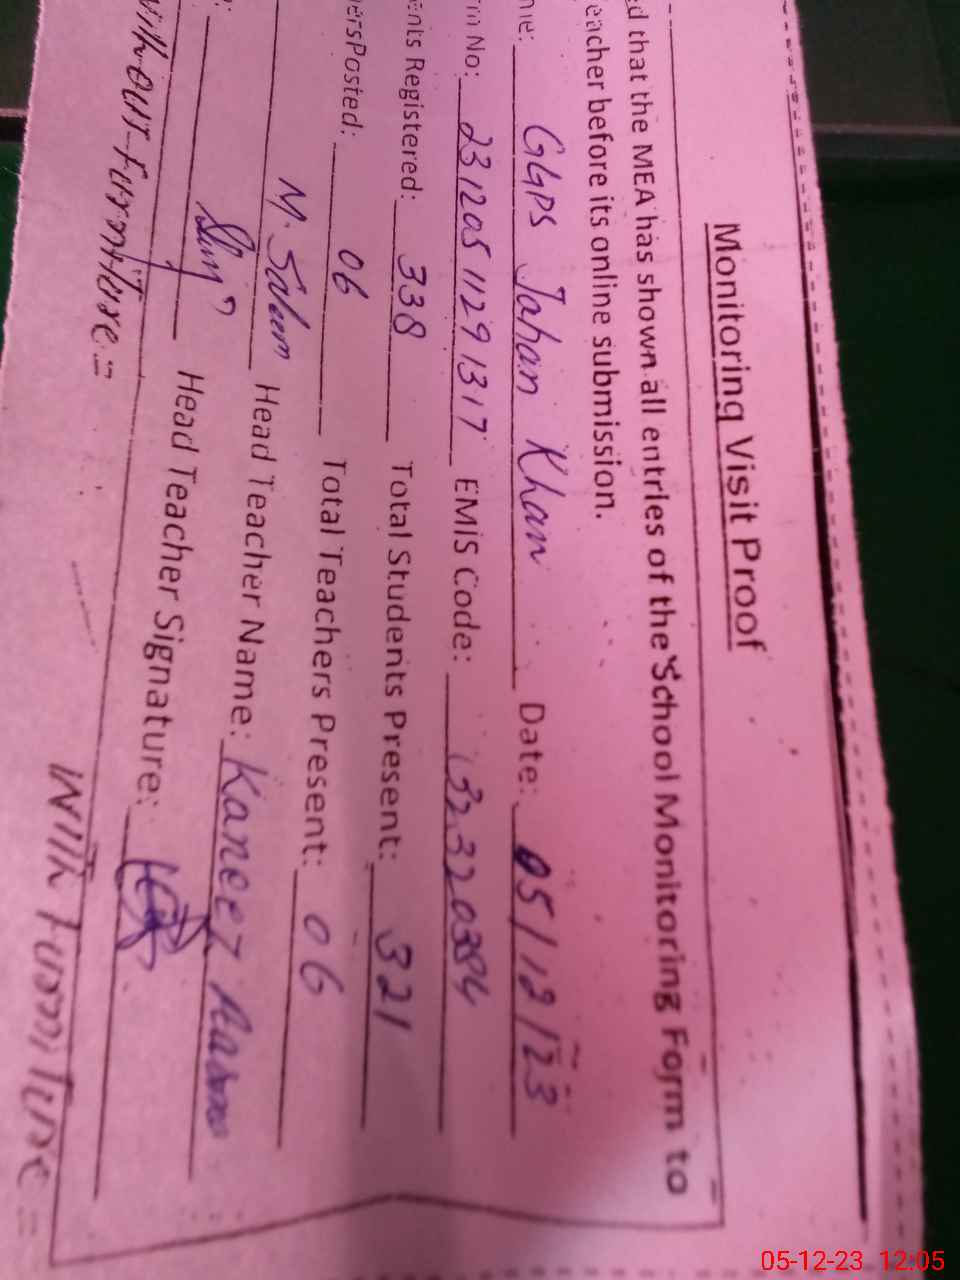 Monitoring Visit Proof
ed that the MEA has shown all entries of the School Monitoring Form to
eacher before its online submission.
me: GGPS Jahan Khan Date: 05/12/23
rm No: 23120511291317 EMIS Code:
ents Registered: 338 Total Students Present: 321
ersPosted: 06 Total Teachers Present: 06
M. Salem Head Teacher Name: Kaneez
Head Teacher Signature:
without furniture =
with furniture =
05-12-23 12:05